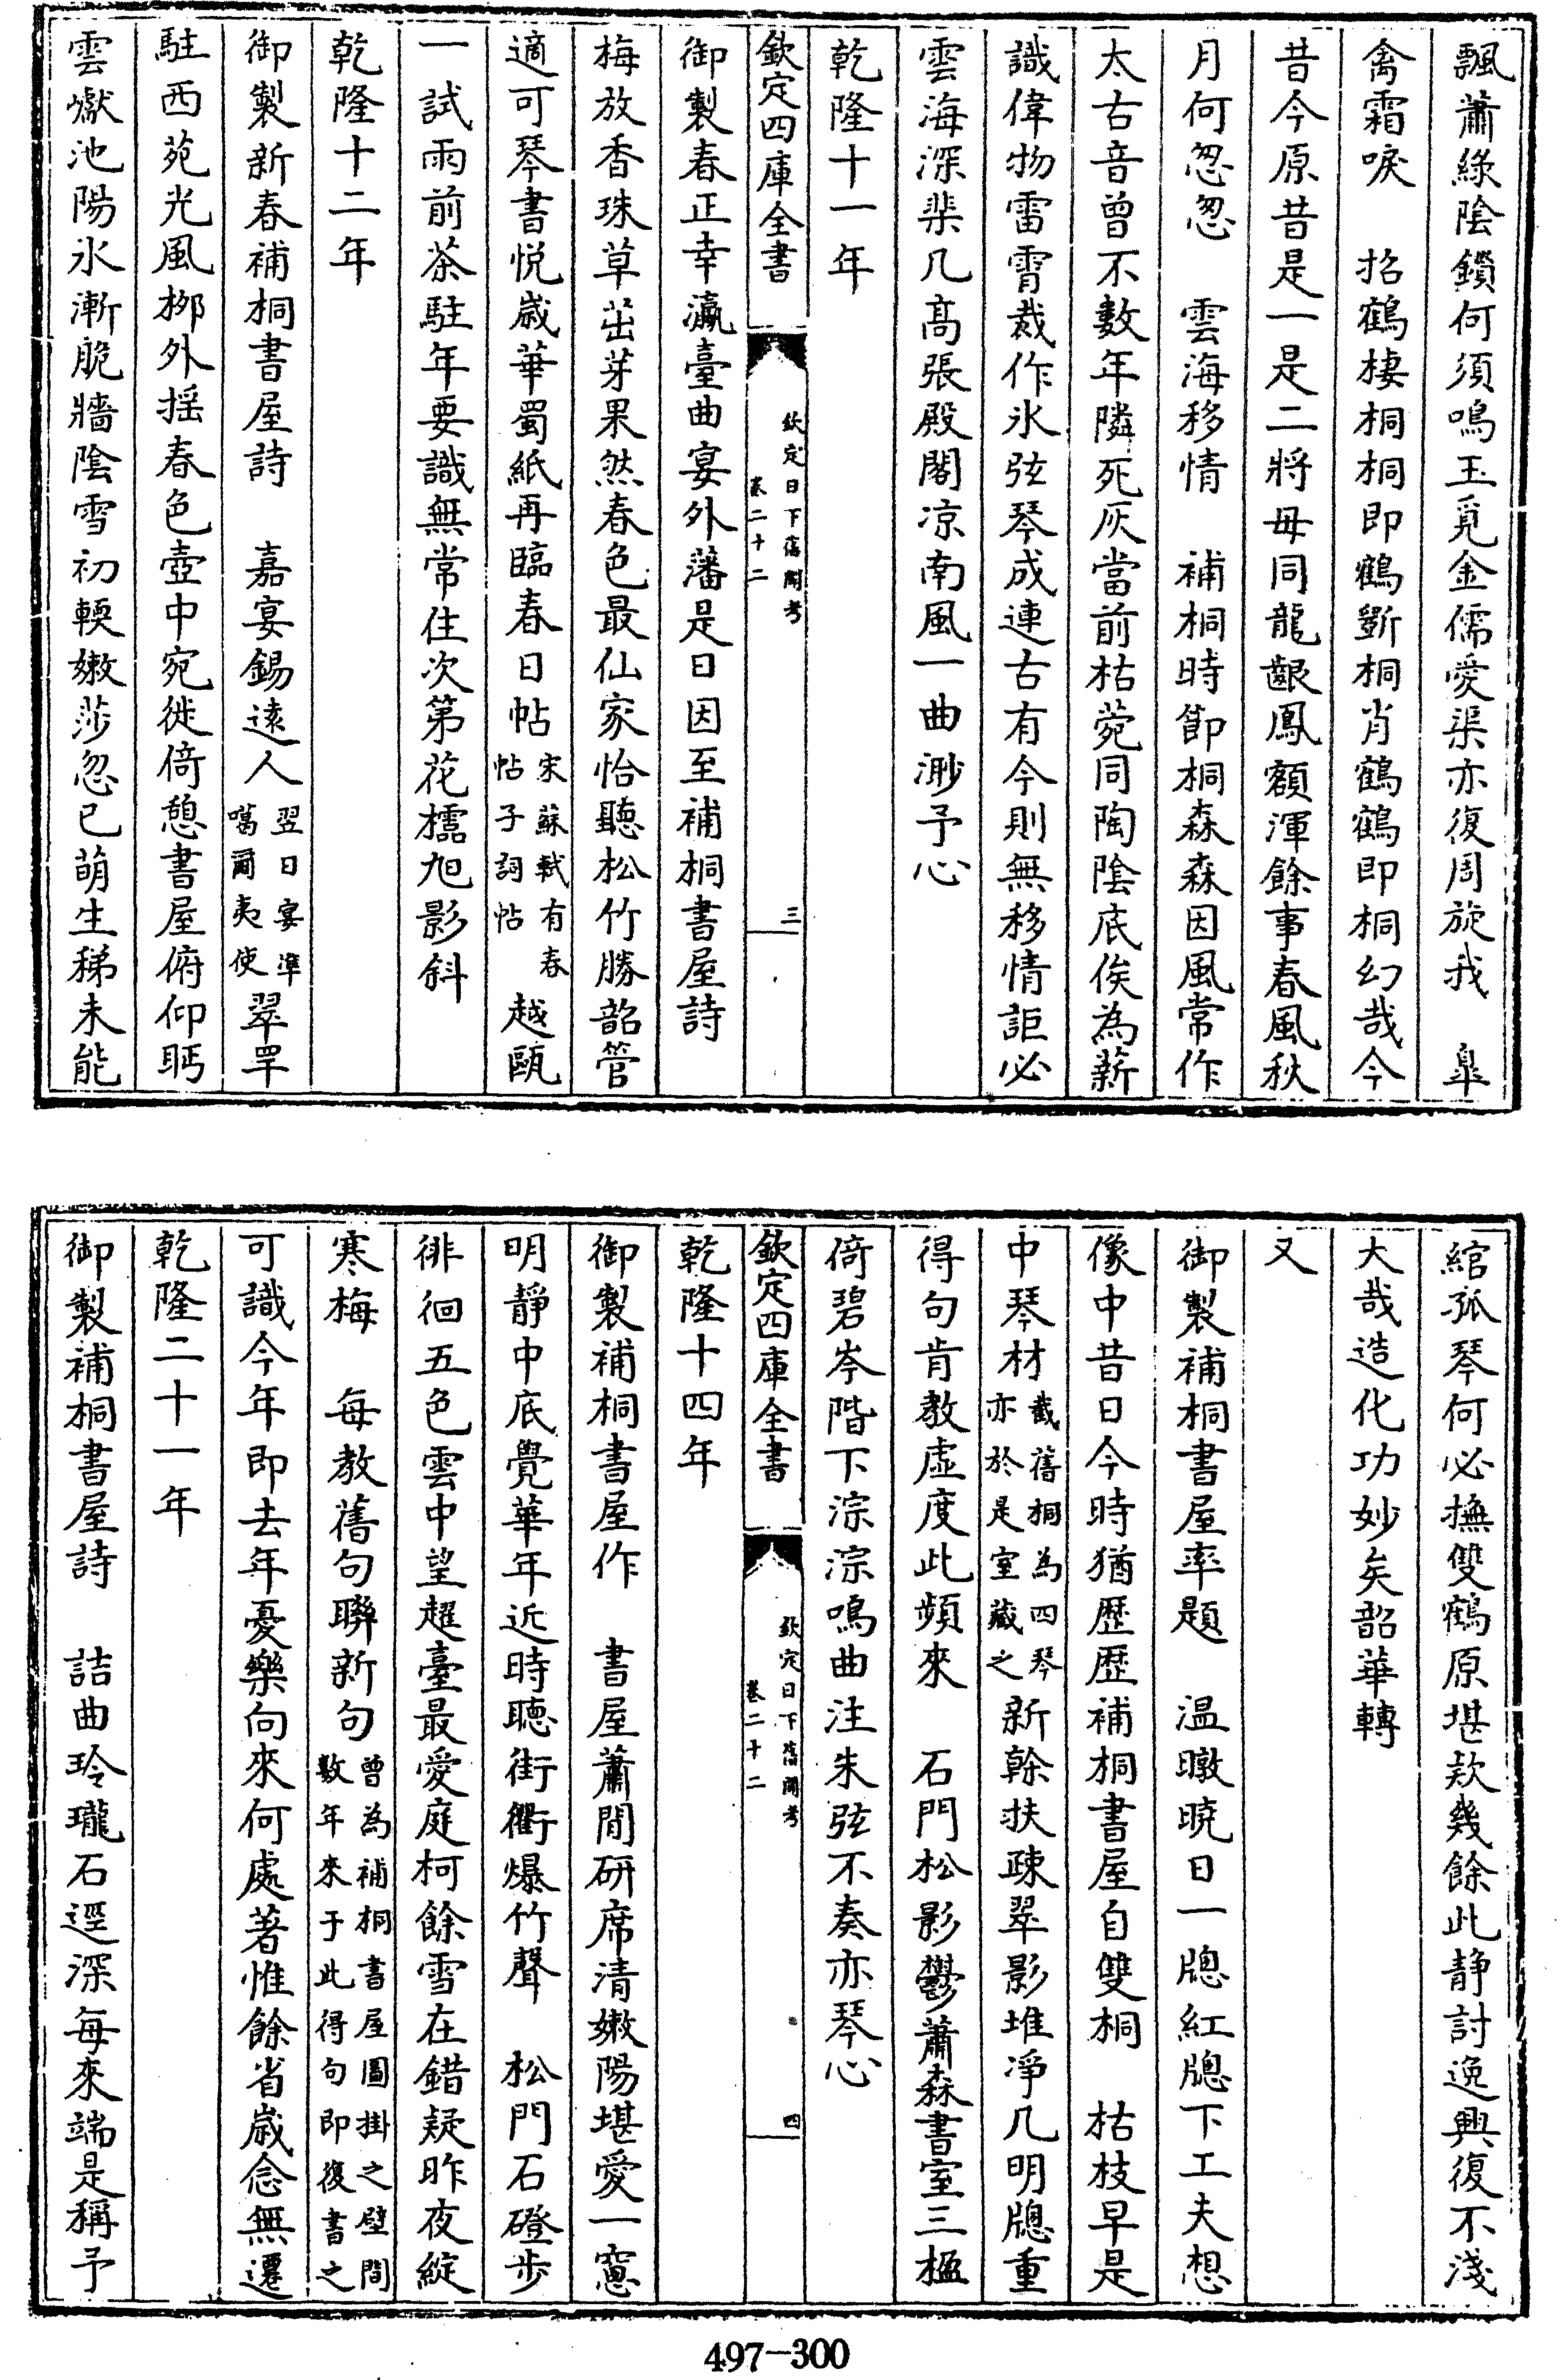 飄蕭綠陰鎖何須鳴玉覓金儒愛渠亦復周旋我　臯
禽霜唳　招鶴棲桐桐即鶴斲桐肖鶴鶴即桐幻哉今
昔今原昔是一是二將毋同龍齦鳳額渾餘事春風秋
月何怱怱　雲海移情　補桐時節桐森森因風常作
太古音曾不數年隣死灰當前枯菀同陶陰底俟為薪
識偉物雷霄裁作氷弦琴成連古有今則無移情詎必
雲海深棐几高張殿閣凉南風一曲渺予心
乾隆十一年
欽定四庫全書
欽定日下舊聞考
卷二十二
三
御製春正幸瀛臺曲宴外藩是日因至補桐書屋詩
梅放香珠草茁芽果然春色最仙家怡聽松竹勝韶管
適可琴書悦歲華蜀紙再臨春日帖宋蘇軾有春帖子詞帖越甌
一試雨前茶駐年要識無常住次第花櫺旭影斜
乾隆十二年
御製新春補桐書屋詩　嘉宴錫遠人翌日宴準噶爾夷使翠罕
駐西苑光風栁外揺春色壺中宛徙倚憩書屋俯仰眄
雲巘池陽氷漸脆牆陰雪初輭嫩莎忽已萌生稊未能
綰孤琴何必撫雙鶴原堪欵幾餘此静討逸興復不淺
大哉造化功妙矣韶華轉
又
御製補桐書屋率題　温暾曉日一牕紅牕下工夫想
像中昔日今時猶歴歴補桐書屋自雙桐　枯枝早是
中琴材截舊桐為四琴亦於是室藏之新幹扶疎翠影堆凈几明牕重
得句肯教虛度此頻來　石門松影鬱蕭森書室三楹
倚碧岑階下淙淙鳴曲注朱弦不奏亦琴心
欽定四庫全書
欽定日下舊聞考
卷二十二
四
乾隆十四年
御製補桐書屋作　書屋蕭閒研席清嫩陽堪愛一窻
明靜中底覺華年近時聽街衢爆竹聲　松門石磴步
徘徊五色雲中望趯臺最愛庭柯餘雪在錯疑昨夜綻
寒梅　每教舊句聯新句曾為補桐書屋圖掛之壁間數年來于此得句即復書之
可識今年即去年憂樂向來何處著惟餘省歲念無遷
乾隆二十一年
御製補桐書屋詩　詰曲玲瓏石逕深每來端是稱予
497-300